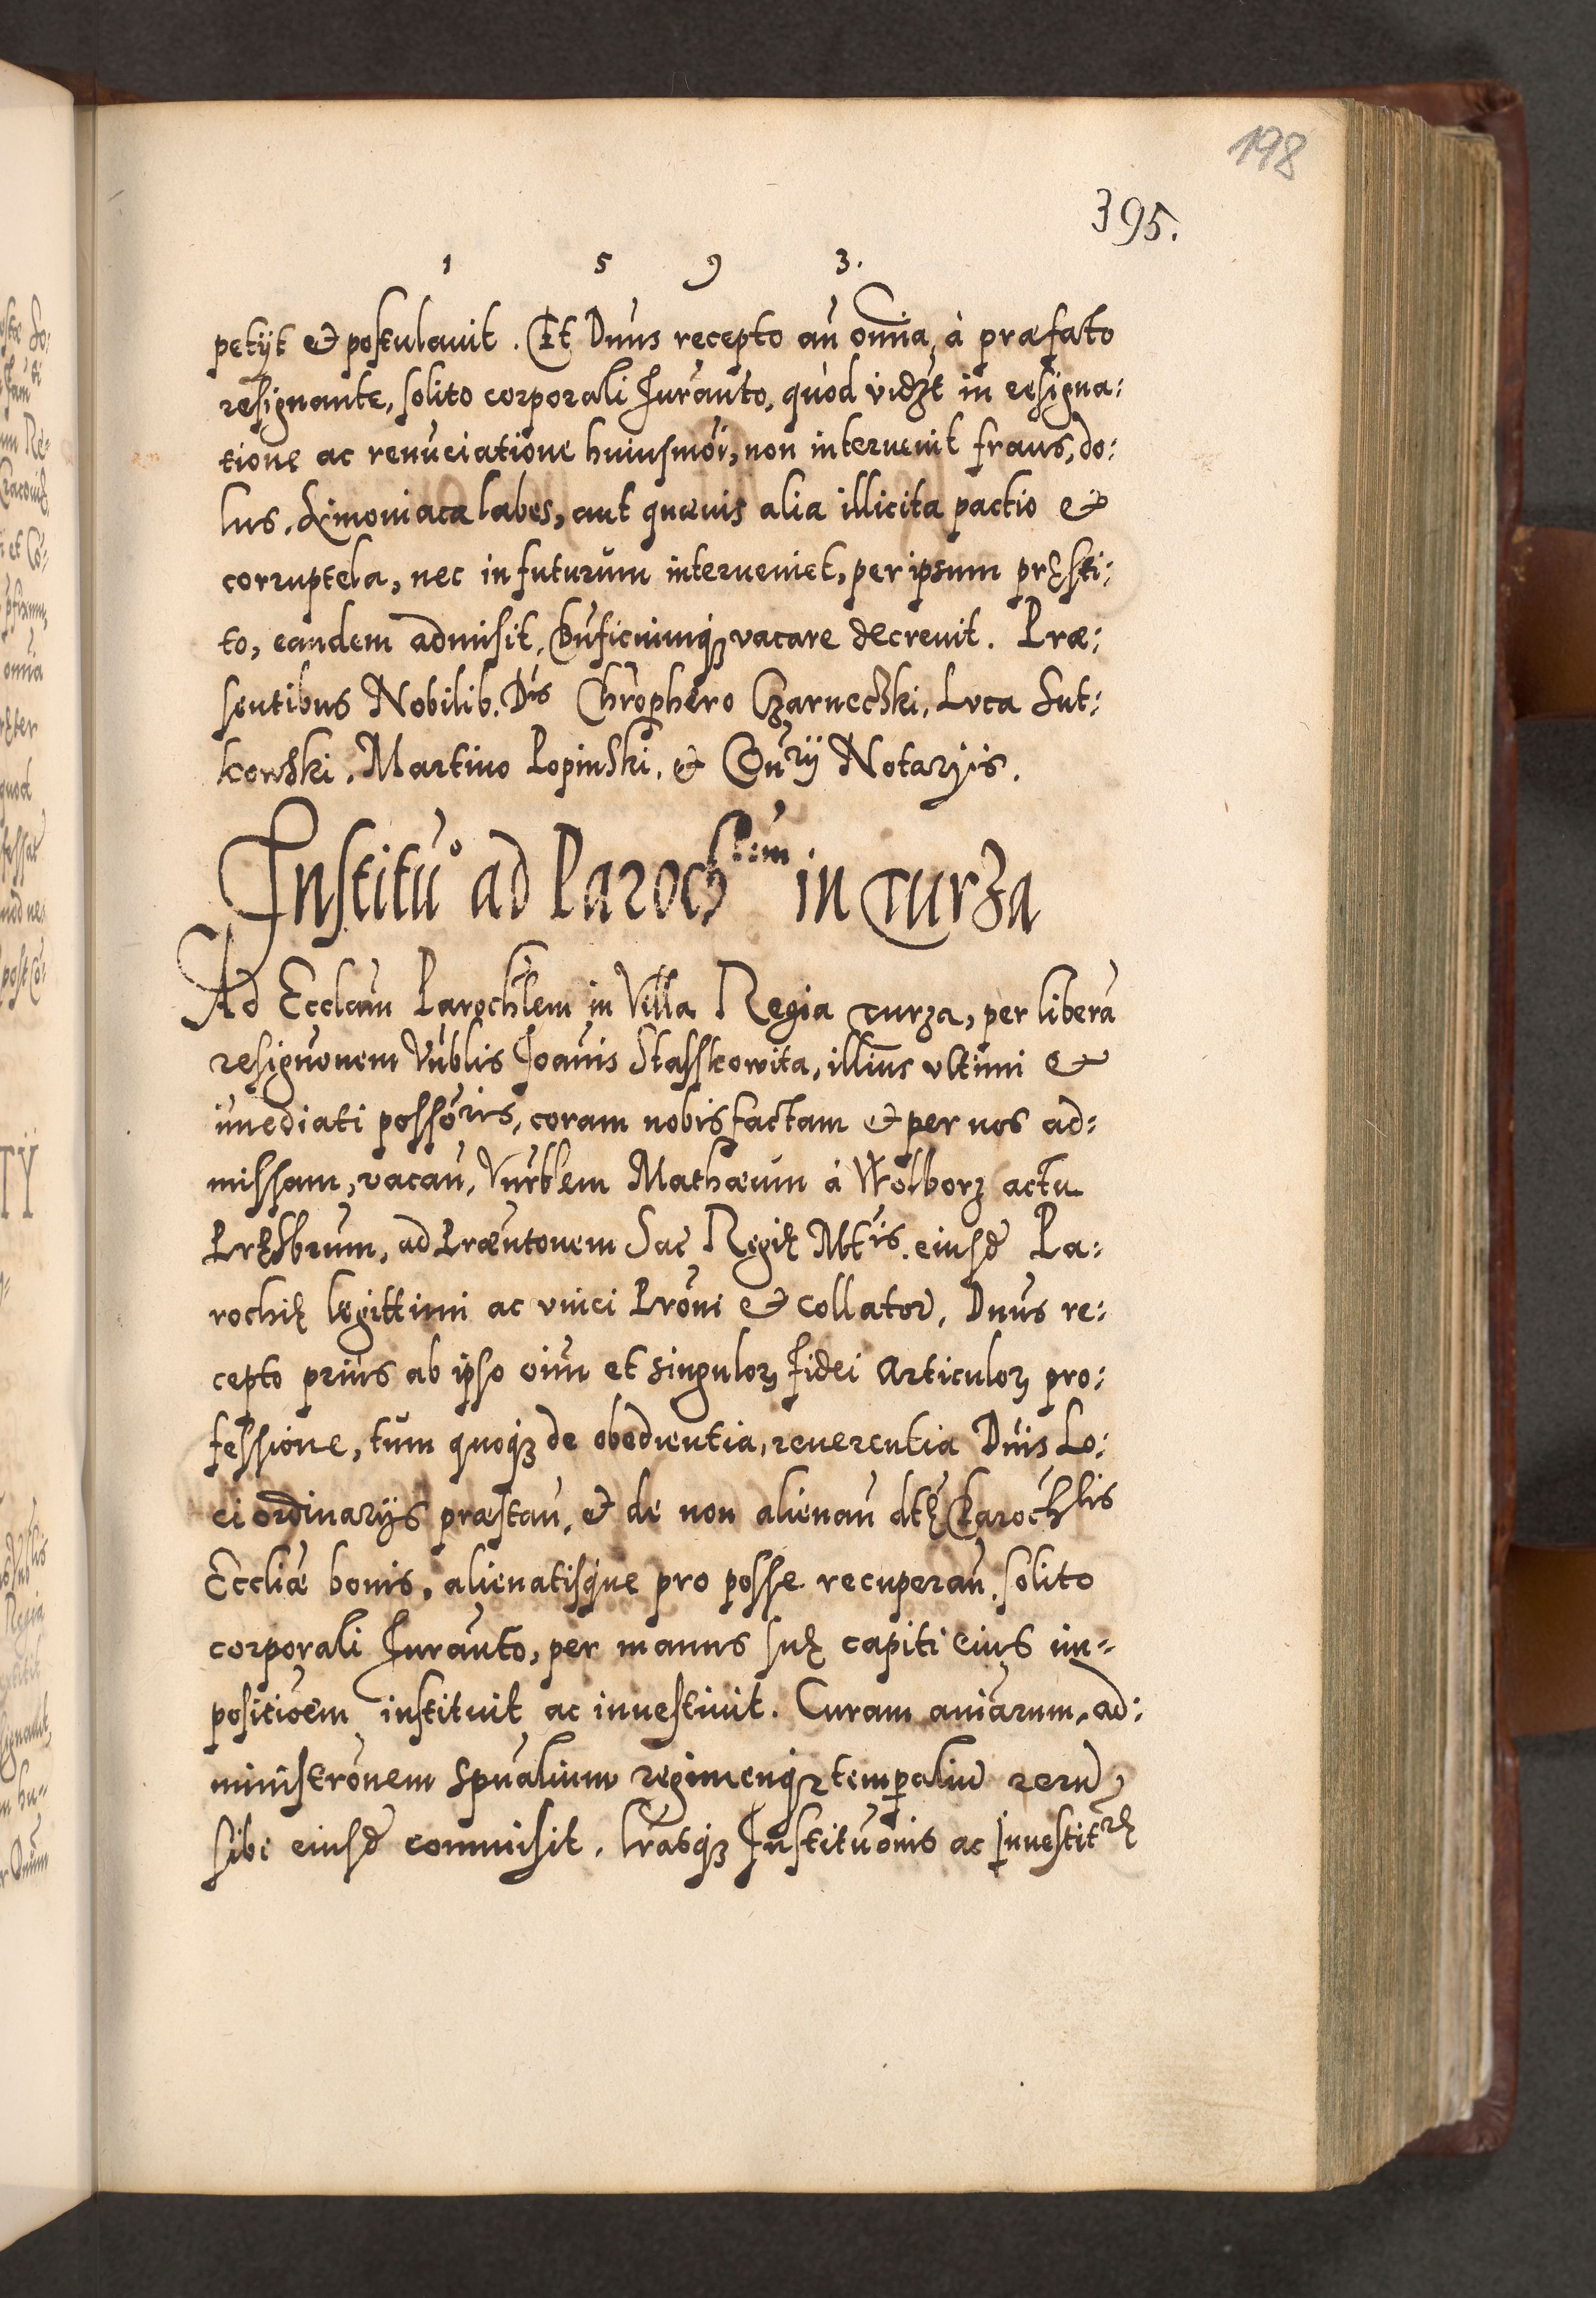 198
395.
1 5 9 3.
petijt et postulauit. Et Dnus recepto an omnia, à præfato
resignante, solito corporali Iuranto, quod vidzt in resigna:
tione ac renuciatione huiusmoi, non interuenit fraus, do:
lus, Simoniaca labes, aut quæuis alia illicita pactio et
corruptela, nec in futurum interueniet, per ipsum pręsti:
to, eandem admisit, Bnficiumq3 vacare decreuit. Præ:
sentibus Nobilib. Dis Chrophero Czarnecski, Luca Sut:
kowski, Martino Lopinski, et Cury Notarijs.
Institu° ad Paroch:em in Turza
Ad Ecclam Parochlem in Villa Regia Turza, per liberã
resignonem Vnblis Joanis Stasskowita, illius vltimi et
imediati possoris, coram nobis factam et per nos ad:
missam, vacan, Vnrblem Mathæum à Wolborz actu
Pręsbrum, ad Præntonem Sac Regię Mtis. eiusd Pa:
rochię legittimi ac vnici Proni et collator, Dnus re:
cepto prius ab ipso oim et singulor fidei articulor pro:
fessione, tum quoq3 de obedientia, reuerentia Dnis Lo:
ci ordinarijs præstan, et de non alienan dtę Parochlis
Eccliæ bonis, alienatisque pro posse recuperan, solito
corporali Iuranto, per manus suę capiti eius im=
positioem instituit ac inuestiuit. Curam aniarum, ad:
ministronem spualium regimenq3 temporaliu rerũ,
sibi eiusd commisit. lrasq3 Institutionis ac Inuestitrę